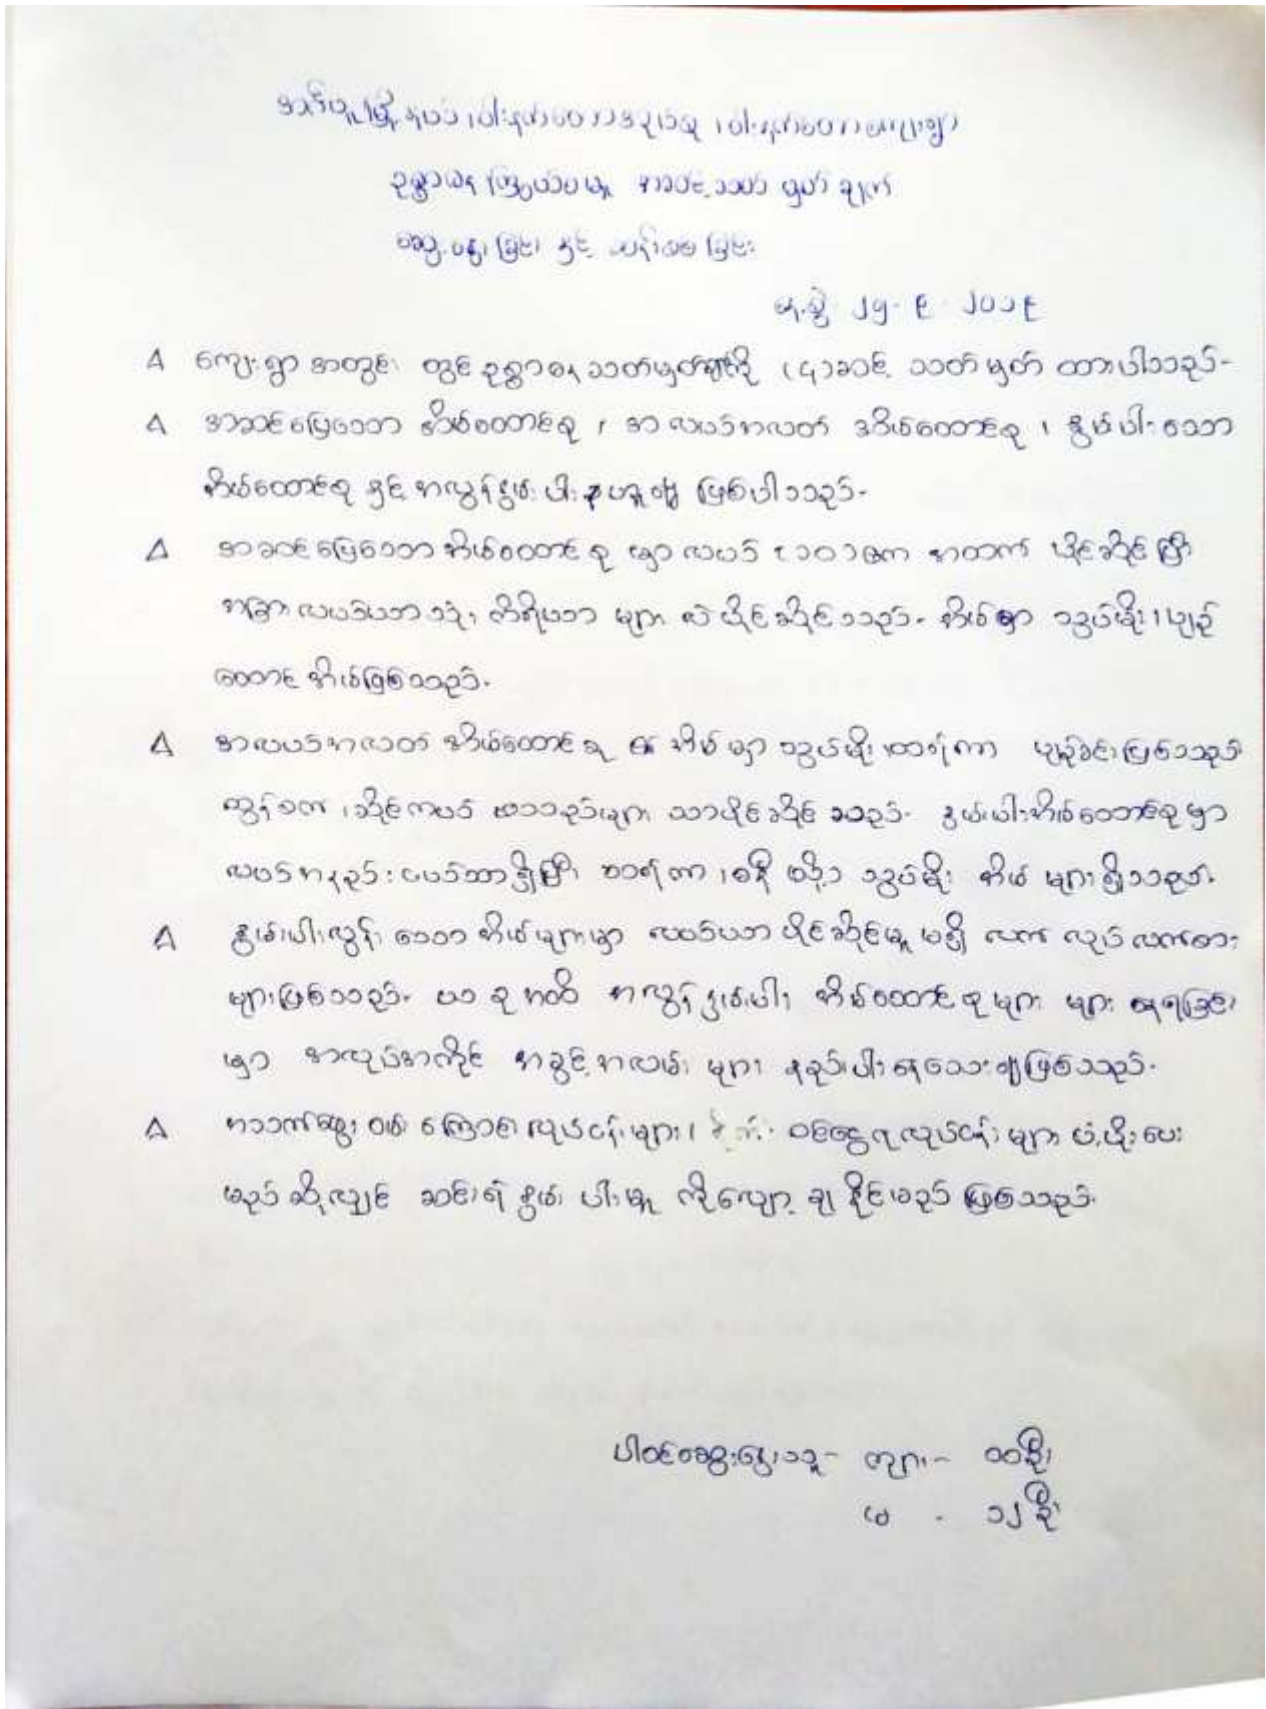 အင်္ဂပူမြို့နယ်၊ ဝါးနက်ချောင်းအုပ်စု၊ ဝါးနက်ချောင်းကျေးရွာ
ဥစ္စာဓန ကြွယ်ဝမှု အဆင့် သတ်မှတ်ချက်
ဆွေးနွေးခြင်း နှင့် သုံးသပ်ခြင်း
နေ့စွဲ ၂၅-၉-၂၀၁၉
∆ ကျေးရွာ အတွင်း တွင် ဥစ္စာဓန သတ်မှတ်ချက်ကို (၄)ဆင့် သတ်မှတ် ထားပါသည်-
∆ အဆင်ပြေသော အိမ်ထောင်စု ၊ အလယ်အလတ် အိမ်ထောင်စု ၊ နွမ်းပါးသော
အိမ်ထောင်စု နှင့် အလွန်နွမ်းပါး ဟူ၍ ဖြစ်ပါသည်-
∆ အဆင်ပြေသော အိမ်ထောင်စု မှာ လယ် ၁၀ ဧက အထက် ပိုင်ဆိုင်ပြီး
အခြား လယ်ယာသုံး ကိရိယာ များ လဲ ပိုင်ဆိုင်သည်- အိမ်မှာ သွပ်မိုး ၊ ပျဉ်
ထောင် အိမ်ဖြစ်သည်-
∆ အလယ်အလတ် အိမ်ထောင်စု အိမ် မှာ သွပ်မိုး ထရံကာ ပျဉ်ခင်း ဖြစ်သည်
ထွန်စက် ၊ ဆိုင်ကယ် စသည်များ သာပိုင်ဆိုင် သည်- နွမ်းပါးအိမ်ထောင်စု မှာ
လယ်အနည်းငယ်သာရှိပြီး ထရံကာ ၊ ဓနိ မို့၁ သွပ်မိုး အိမ် များရှိသည်-
∆ နွမ်းပါးလွန်း သော အိမ်များမှာ လယ်ယာ ပိုင်ဆိုင်မှု မရှိ လက် လုပ် လက်စား
များဖြစ်သည်- ယ ခု အထိ အလွန် နွမ်းပါး အိမ်ထောင်စု များ များ နေရခြင်း
မှာ အလုပ်အကိုင် အခွင့် အလမ်း များ နည်းပါး နေသေး၍ဖြစ်သည်-
∆ အသက်မွေး ဝမ်း ကြောင်း လုပ်ငန်းများ ၊ ဝင်ငွေရ လုပ်ငန်း များ ပံ့ပိုး ပေး
မည် ဆိုလျှင် ဆင်းရဲ နွမ်း ပါးမှု ကိုလျော့ ချ နိုင်မည် ဖြစ်သည်-
ပါဝင်ဆွေးနွေးသူ- ကျား- ၁၁ဦး
မ - ၁၂ ဦး